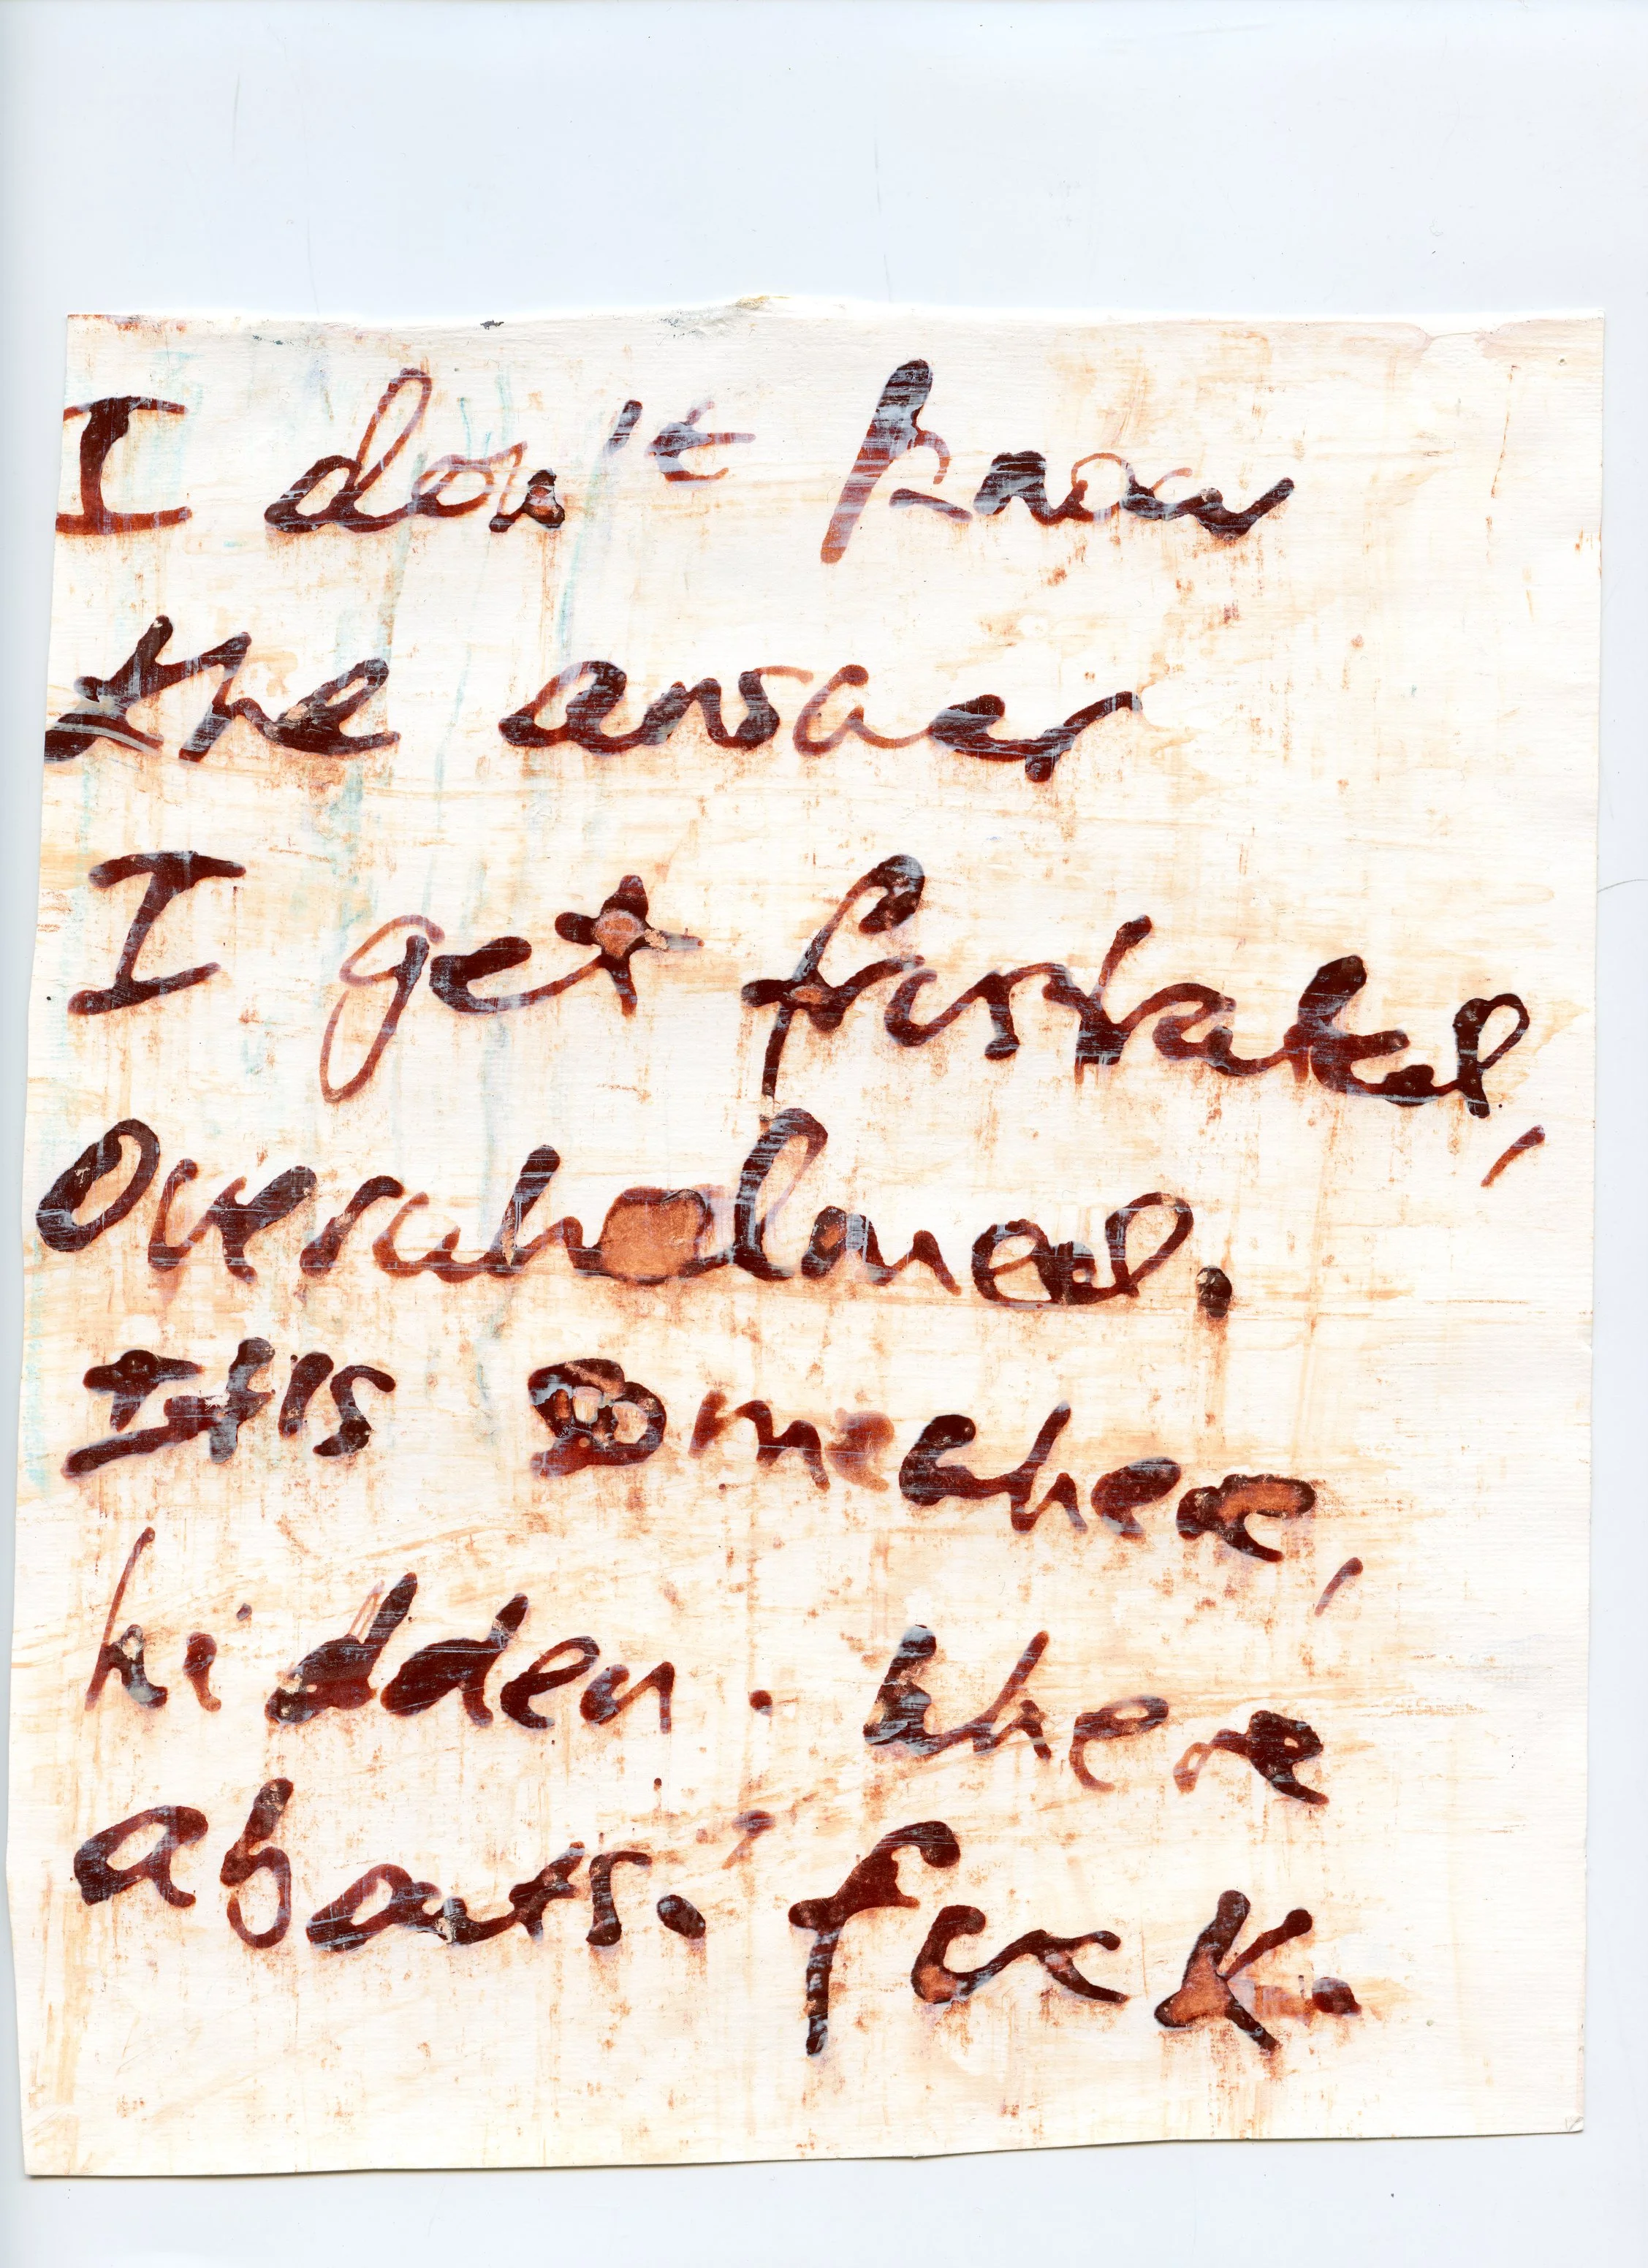 I don't know
the answer
I get frustrated,
Overwhelmed.
It's somewhere,
hidden. Where
abouts. Fuck.